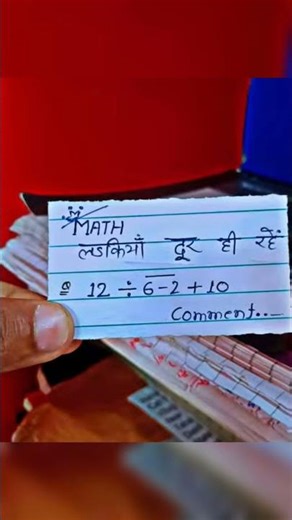 MATH
लडकियाँ दूर ही रहें
Q 12 ÷ 6̅ ̅-̅ ̅2̅ + 10
Comment...